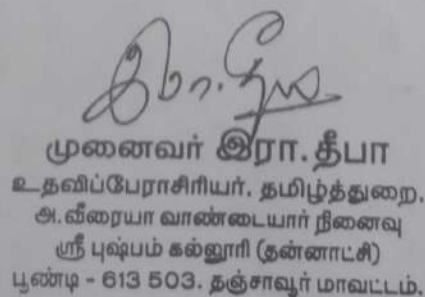 இரா. தீபா
முனைவர் இரா.தீபா
உதவிப்பேராசிரியர், தமிழ்த்துறை,
அ.வீரையா வாண்டையார் நினைவு
ஸ்ரீ புஷ்பம் கல்லூரி (தன்னாட்சி)
பூண்டி - 613 503. தஞ்சாவூர் மாவட்டம்.